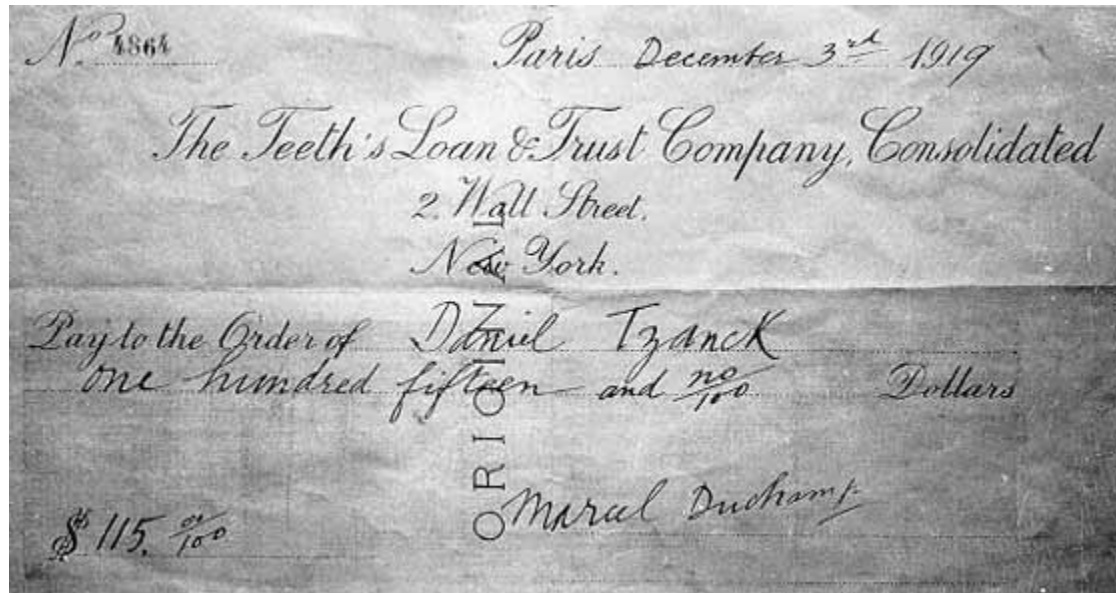 No. 4864
Paris December 3rd 1919
The Teeth's Loan & Trust Company, Consolidated
2. Wall Street.
New York.
Pay to the Order of Daniel Tzanck
one hundred fifteen and no/100 Dollars
Marcel Duchamp
$ 115. oo/100
ORIGINAL